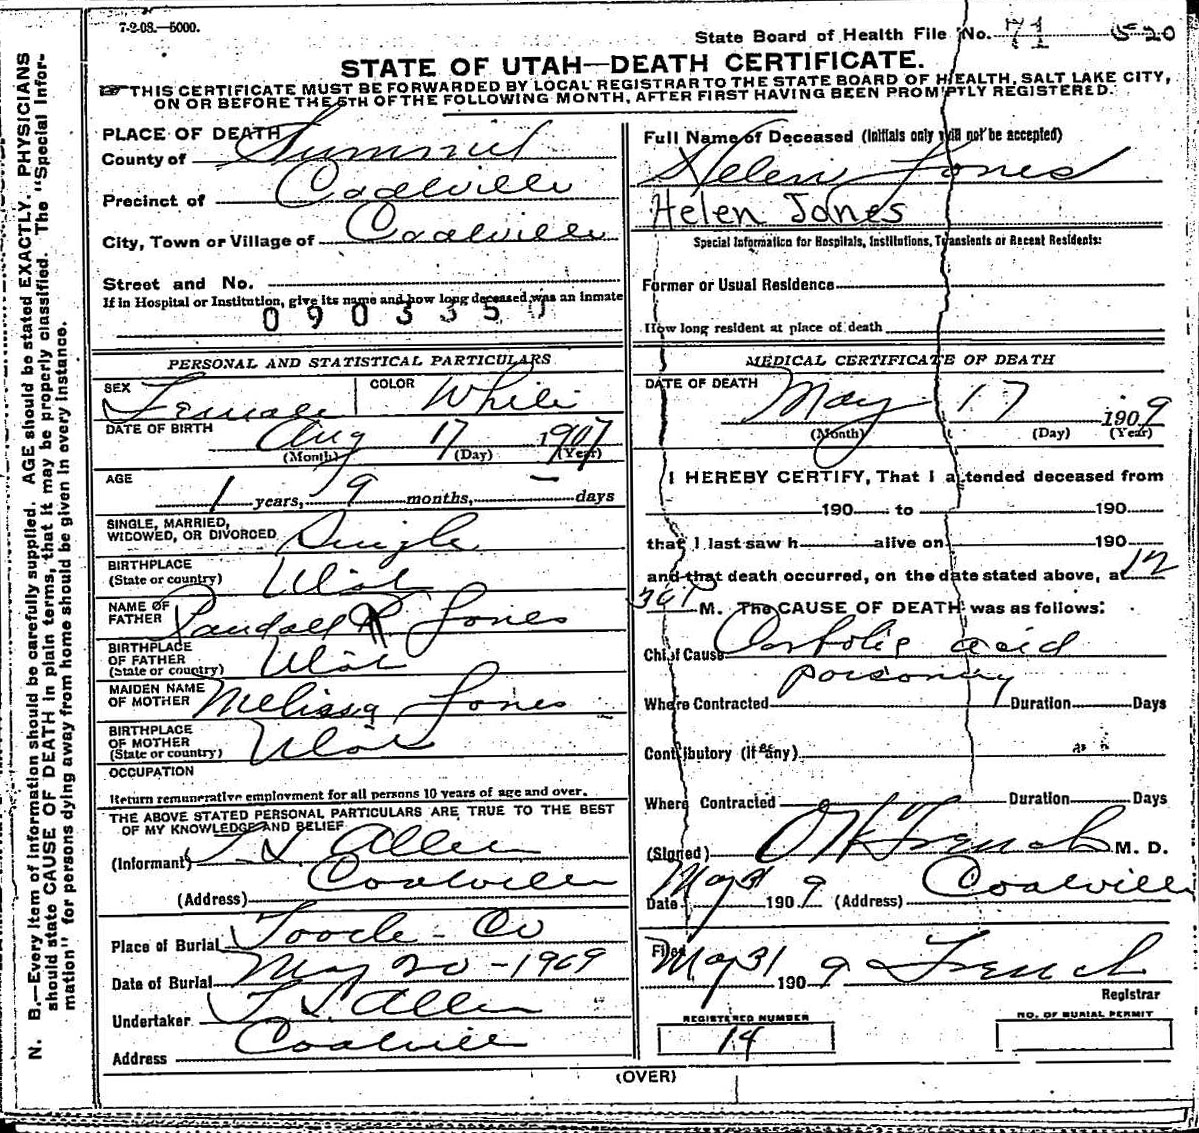 7-2-08.—5000.
State Board of Health File No. 71 520
STATE OF UTAH—DEATH CERTIFICATE.
THIS CERTIFICATE MUST BE FORWARDED BY LOCAL REGISTRAR TO THE STATE BOARD OF HEALTH, SALT LAKE CITY,
ON OR BEFORE THE 5TH OF THE FOLLOWING MONTH, AFTER FIRST HAVING BEEN PROMPTLY REGISTERED.
N. B.—Every item of information should be carefully supplied. AGE should be stated EXACTLY. PHYSICIANS
should state CAUSE OF DEATH in plain terms, that it may be properly classified. The "Special Infor-
mation" for persons dying away from home should be given in every instance.
PLACE OF DEATH
County of Summit
Precinct of Coalville
City, Town or Village of Coalville
Street and No.
If in Hospital or Institution, give its name and how long deceased was an inmate
0903357
PERSONAL AND STATISTICAL PARTICULARS
SEX Female COLOR White
DATE OF BIRTH Aug 17 1907
(Month) (Day) (Year)
AGE 1 years, 9 months, — days
SINGLE, MARRIED,
WIDOWED, OR DIVORCED Single
BIRTHPLACE
(State or country) Utah
NAME OF
FATHER Randall R. Jones
BIRTHPLACE
OF FATHER
(State or country) Utah
MAIDEN NAME
OF MOTHER Melissa Jones
BIRTHPLACE
OF MOTHER
(State or country) Utah
OCCUPATION
Return remunerative employment for all persons 10 years of age and over.
THE ABOVE STATED PERSONAL PARTICULARS ARE TRUE TO THE BEST
OF MY KNOWLEDGE AND BELIEF
(Informant) Allen
(Address) Coalville
Place of Burial Tooele - Co
Date of Burial May 20 - 1909
Undertaker Allen
Address Coalville
Full Name of Deceased (Initials only will not be accepted)
Helen Jones
Helen Jones
Special Information for Hospitals, Institutions, Transients or Recent Residents:
Former or Usual Residence
How long resident at place of death
MEDICAL CERTIFICATE OF DEATH
DATE OF DEATH May 17 1909
(Month) (Day) (Year)
I HEREBY CERTIFY, That I attended deceased from
190 to 190
that I last saw h alive on 190
and that death occurred, on the date stated above, at 12
30 P M. The CAUSE OF DEATH was as follows:
Chief Cause Carbolic acid
poisoning
Where Contracted Duration Days
Contributory (if any)
Where Contracted Duration Days
(Signed) French M. D.
Date May 31 1909 (Address) Coalville
Filed May 31 1909 French
Registrar
REGISTERED NUMBER
14
NO. OF BURIAL PERMIT
(OVER)